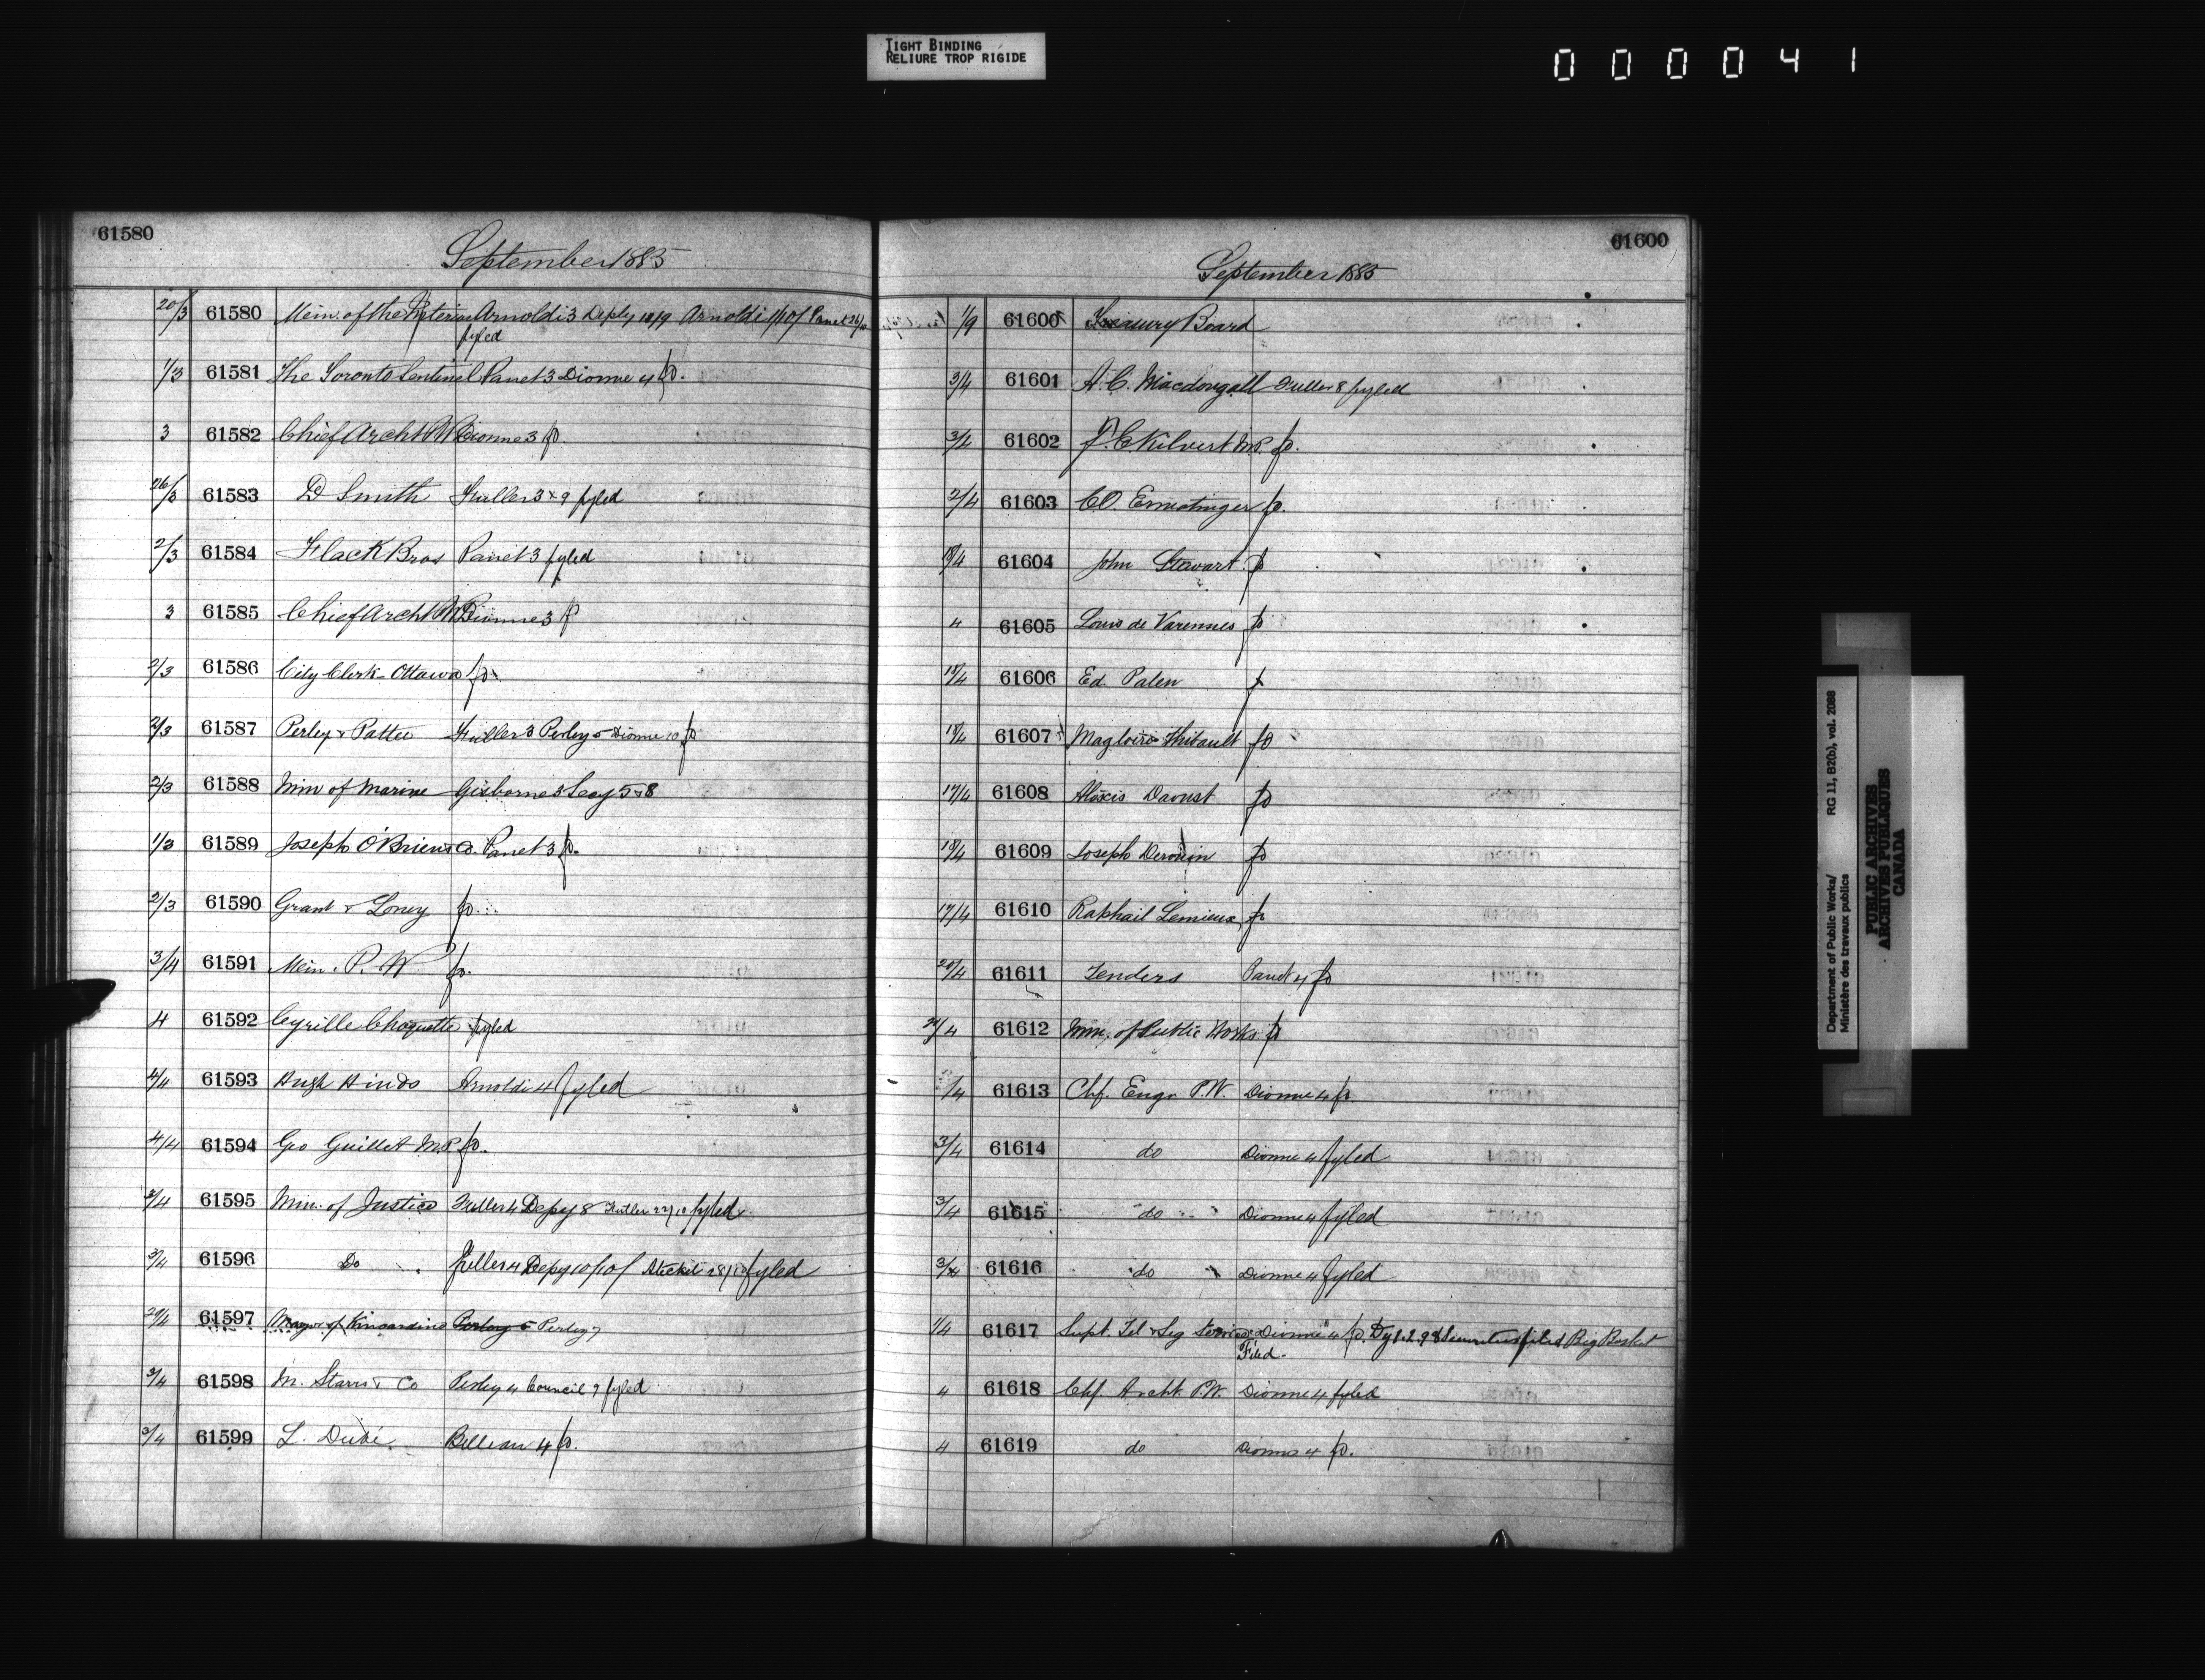 TIGHT BINDING
RELIURE TROP RIGIDE
000041
61580
September 1885
20/3 61580 Min. of the Interior Arnoldi 3 Depty 18/9 Arnoldi 1/10/ Panet 26/10
fyled
1/3 61581 The Toronto Sentinel Panet 3 Dionne 4 fo.
3 61582 Chief Archt PW Dionne 3 fo.
26/3 61583 D Smith Fuller 3 & 9 fyled
2/3 61584 Flack Bros Panet 3 fyled
3 61585 Chief Archt PW Dionne 3 fo
2/3 61586 City Clerk Ottawa fo.
2/3 61587 Perley & Pattee Fuller 3 Perley 5 Dionne 10 fo
2/3 61588 Min of Marine Gisborne 3 Secy 5 & 8
1/3 61589 Joseph O'Brien & Co. Panet 3 fo.
2/3 61590 Grant & Loney fo.
3/4 61591 Min. P. W fo.
4 61592 Cyrille Choquette fyled
4/4 61593 Hugh Hinds Arnoldi 4 fyled
4/4 61594 Geo Guillet M.P. fo.
3/4 61595 Min. of Justice Fuller 4 Depy 8 Fuller 22/10 fyled
3/4 61596 Do Fuller 4 Depy 10/10/ Steckel 28/10 fyled
29/4 61597 Mayor of Kincardine Perley 5 Perley 7
3/4 61598 M. Starrs & Co Perley 4 Council 9 fyled
3/4 61599 L. Dubé. Belleau 4 fo.
61600
September 1885
1/9 61600 Treasury Board
3/4 61601 A. C. Macdougall Fuller 8 fyled
3/4 61602 F. C. Kilvert M.P. fo.
2/4 61603 C.O. Ermatinger fo.
18/4 61604 John Stewart fo
4 61605 Louis de Varennes fo
17/4 61606 Ed. Palen fo
18/4 61607 Magloire Thibault fo
17/4 61608 Alexis Daoust fo
18/4 61609 Joseph Derouin fo
17/4 61610 Raphail Lemieux fo
20/4 61611 Tenders Panet 4 fo
61612 Min. of Public Works fo
/4 61613 Chf. Engr P.W. Dionne 4 fo.
3/4 61614 do Dionne 4 fyled
3/4 61615 do Dionne 4 fyled
3/4 61616 do Dionne 4 fyled
1/4 61617 Supt. Tel & Sig Service Dionne 4 fo. Dy 1.2.98 Securities filed Big Basket
Filed.
4 61618 Chf Archt. P.W. Dionne 4 fyled
4 61619 do Dionne 4 fo.
Department of Public Works/ RG 11, B2(b), vol. 2088
Ministère des travaux publics
PUBLIC ARCHIVES
ARCHIVES PUBLIQUES
CANADA